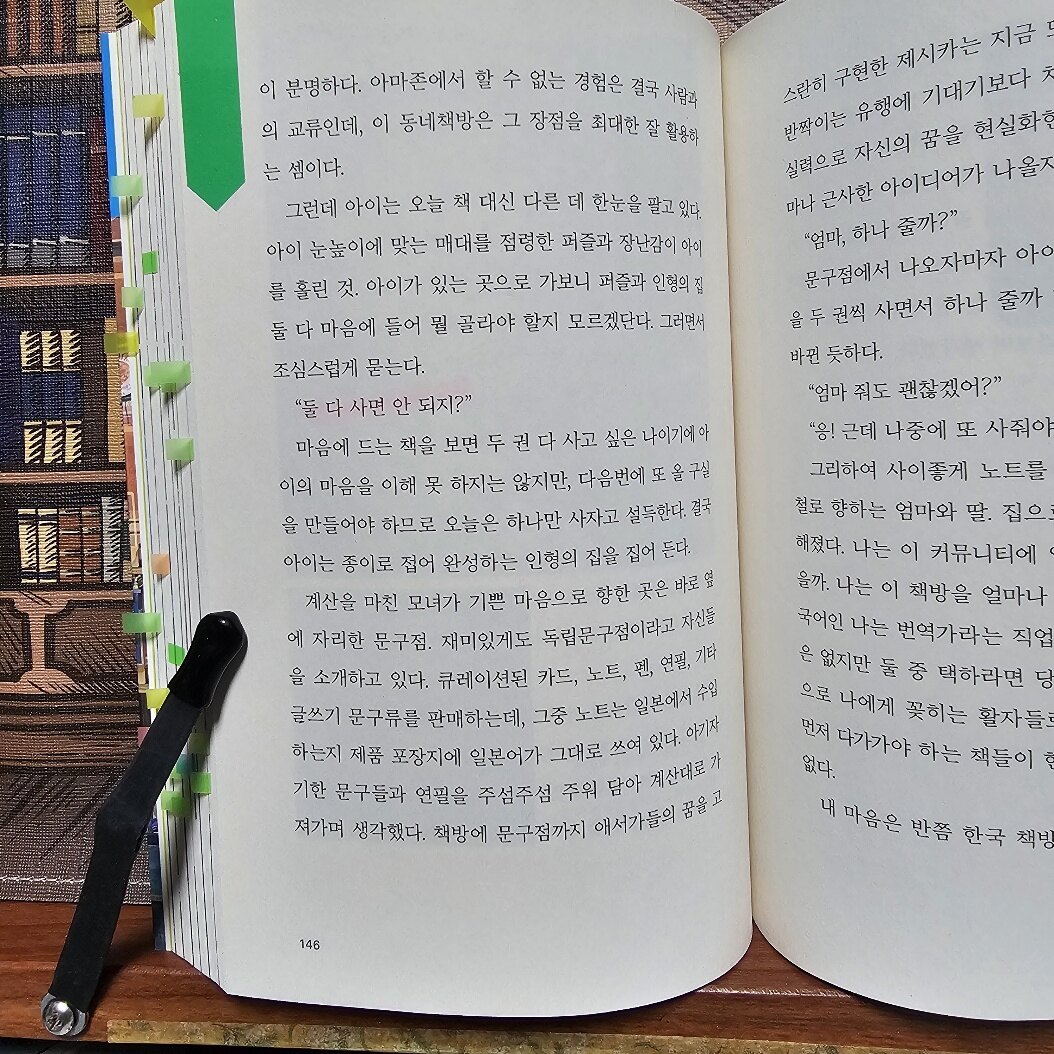 이 분명하다. 아마존에서 할 수 없는 경험은 결국 사람과
의 교류인데, 이 동네책방은 그 장점을 최대한 잘 활용하
는 셈이다.
그런데 아이는 오늘 책 대신 다른 데 한눈을 팔고 있다.
아이 눈높이에 맞는 매대를 점령한 퍼즐과 장난감이 아이
를 홀린 것. 아이가 있는 곳으로 가보니 퍼즐과 인형의 집
둘 다 마음에 들어 뭘 골라야 할지 모르겠단다. 그러면서
조심스럽게 묻는다.
“둘 다 사면 안 되지?”
마음에 드는 책을 보면 두 권 다 사고 싶은 나이기에 아
이의 마음을 이해 못 하지는 않지만, 다음번에 또 올 구실
을 만들어야 하므로 오늘은 하나만 사자고 설득한다. 결국
아이는 종이로 접어 완성하는 인형의 집을 집어 든다.
계산을 마친 모녀가 기쁜 마음으로 향한 곳은 바로 옆
에 자리한 문구점. 재미있게도 독립문구점이라고 자신들
을 소개하고 있다. 큐레이션된 카드, 노트, 펜, 연필, 기타
글쓰기 문구류를 판매하는데, 그중 노트는 일본에서 수입
하는지 제품 포장지에 일본어가 그대로 쓰여 있다. 아기자
기한 문구들과 연필을 주섬주섬 주워 담아 계산대로 가
져가며 생각했다. 책방에 문구점까지 애서가들의 꿈을 고
146
스란히 구현한 제시카는 지금
반짝이는 유행에 기대기보다
실력으로 자신의 꿈을 현실화한
마나 근사한 아이디어가 나올지
“엄마, 하나 줄까?”
문구점에서 나오자마자 아이
을 두 권씩 사면서 하나 줄까
바뀐 듯하다.
“엄마 줘도 괜찮겠어?”
“응! 근데 나중에 또 사줘야
그리하여 사이좋게 노트를
철로 향하는 엄마와 딸. 집으로
해졌다. 나는 이 커뮤니티에
을까. 나는 이 책방을 얼마나
국어인 나는 번역가라는 직업
은 없지만 둘 중 택하라면 당
으로 나에게 꽂히는 활자들로
먼저 다가가야 하는 책들이
없다.
내 마음은 반쯤 한국 책방